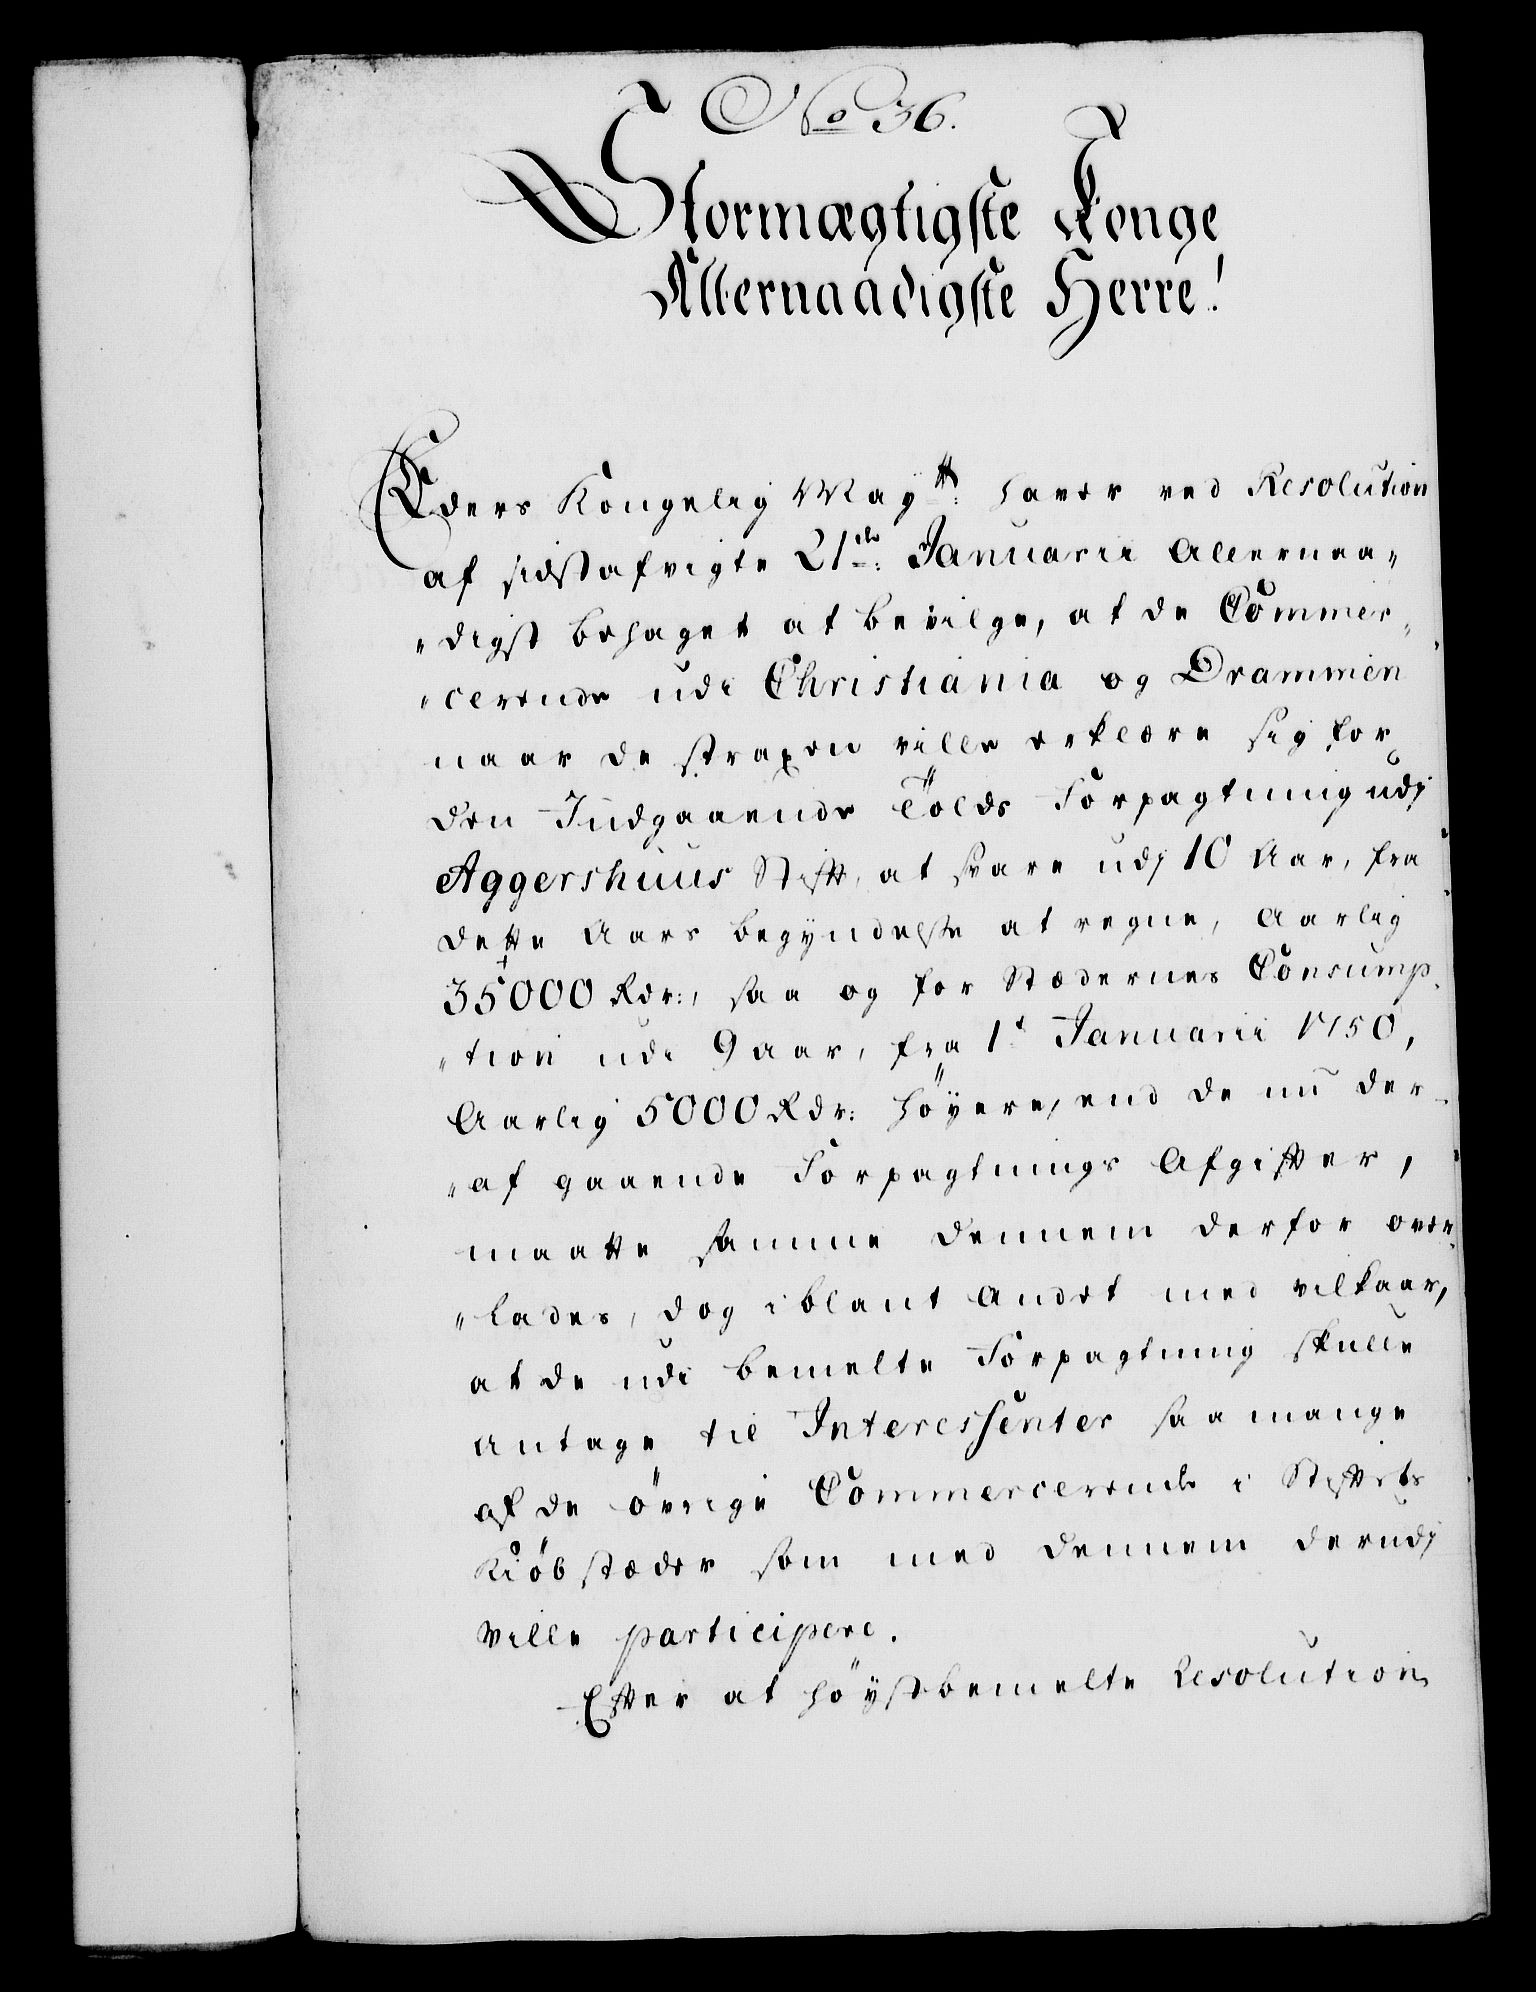 No 36.
Stormægtigste Konge
Allernaadigste Herre!
Eders Kongelig Maytt: haver ved Resolution
af sidstafvigte 21de: Januarii Allernaa„
„digst behaget at bevilge, at de Commer„
„cerende udi Christiania og Drammen
naar de straxen ville erklære sig for
den Indgaaende Tolds Forpagtning udj
Aggershuus Stift, at svare udj 10 Aar, fra
dette Aars begyndelse at regne, Aarlig
35000 Rdr:, saa og for Stædernes Consump„
„tion udi 9 aar, fra 1t Januarii 1750,
Aarlig 5000 Rdr: höyere, end de nu der„
„af gaaende Forpagtnings Afgifter,
maatte samme dennem derfor over„
„lades, dog iblant andet med vilkaar,
at de udi bemelte Forpagtning skulle
antage til Interessenter saa mange
af de övrige Commercerende i Stiftets
Kiöbstæder som med dennem derudj
ville participere.
Efter at höystbemelte Resolution